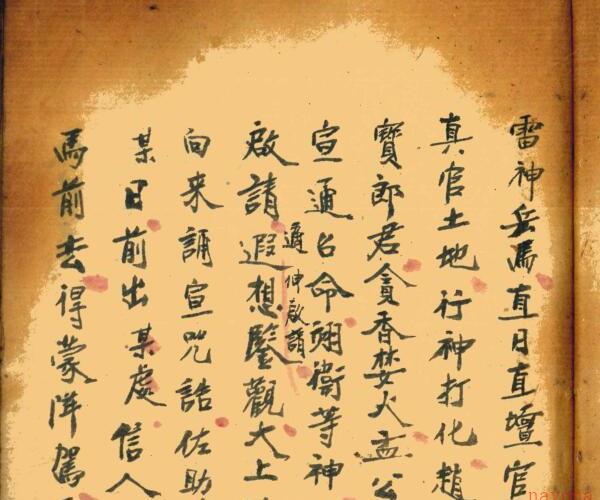 雷神岳馬直日直壇官
真官土地行神打化趙
寶郎君貪香婪火孟公
宣通召命翊衛等神
啟請遐想鑒觀大上
適伸啟請
向来誦宣咒誥佐助
某日前出某處信人
馬前去得蒙降駕